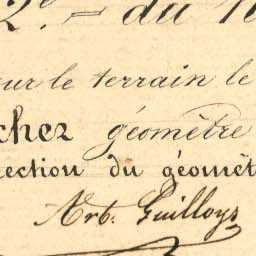 2º.= du
sur le terrain le
chez géomètre
rection du géomèt
Art. Guilloys